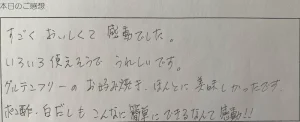 本日のご感想
すごく おいしくて 感動でした。
いろいろ使えそうで うれしいです。
グルテンフリーの お好み焼き、ほんとに 美味しかったです。
松酢・白だしも こんなに簡単にできるなんて 感動!!